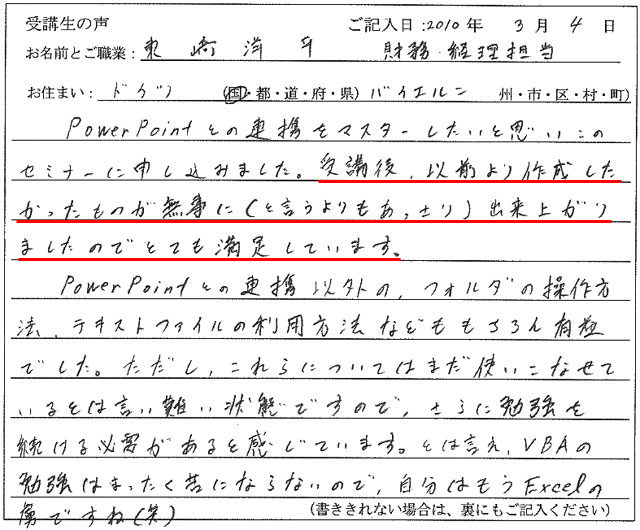 受講生の声 ご記入日:2010年 3月 4日
お名前とご職業: 東崎 洋平 財務・経理担当
お住まい: ドイツ (国・都・道・府・県) バイエルン 州・市・区・村・町)
PowerPointとの連携をマスターしたいと思いこの
セミナーに申し込みました。受講後、以前より作成した
かったものが無事に(と言うよりもあっさり)出来上がり
ましたのでとても満足しています。
PowerPointとの連携以外の、フォルダの操作方
法、テキストファイルの利用方法などももちろん有益
でした。ただし、これらについてはまだ使いこなせて
いるとは言い難い状態ですので、さらに勉強を
続ける必要があると感じています。とは言え、VBAの
勉強はまったく苦にならないので、自分はもうExcelの
虜ですね(笑)
(書ききれない場合は、裏にもご記入ください)